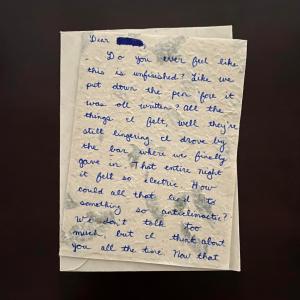 Dear
Do you ever feel like
this is unfinished? Like we
put down the pen 'fore it
was all written? All the
things I felt, well they're
still lingering. I drove by
the bar where we finally
gave in. That entire night
it felt so electric. How
could all that lead to
something so anticlimactic?
We don't talk too
much, but I think about
you all the time. Now that